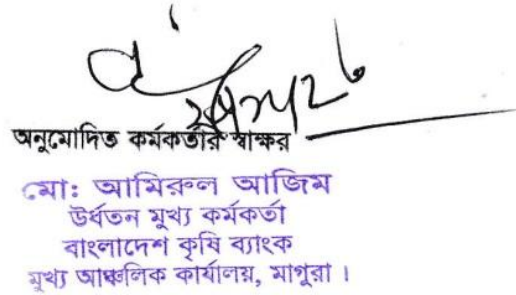 অনুমোদিত কর্মকর্তার স্বাক্ষর
মো: আমিরুল আজিম
উর্ধতন মুখ্য কর্মকর্তা
বাংলাদেশ কৃষি ব্যাংক
মুখ্য আঞ্চলিক কার্যালয়, মাগুরা ।